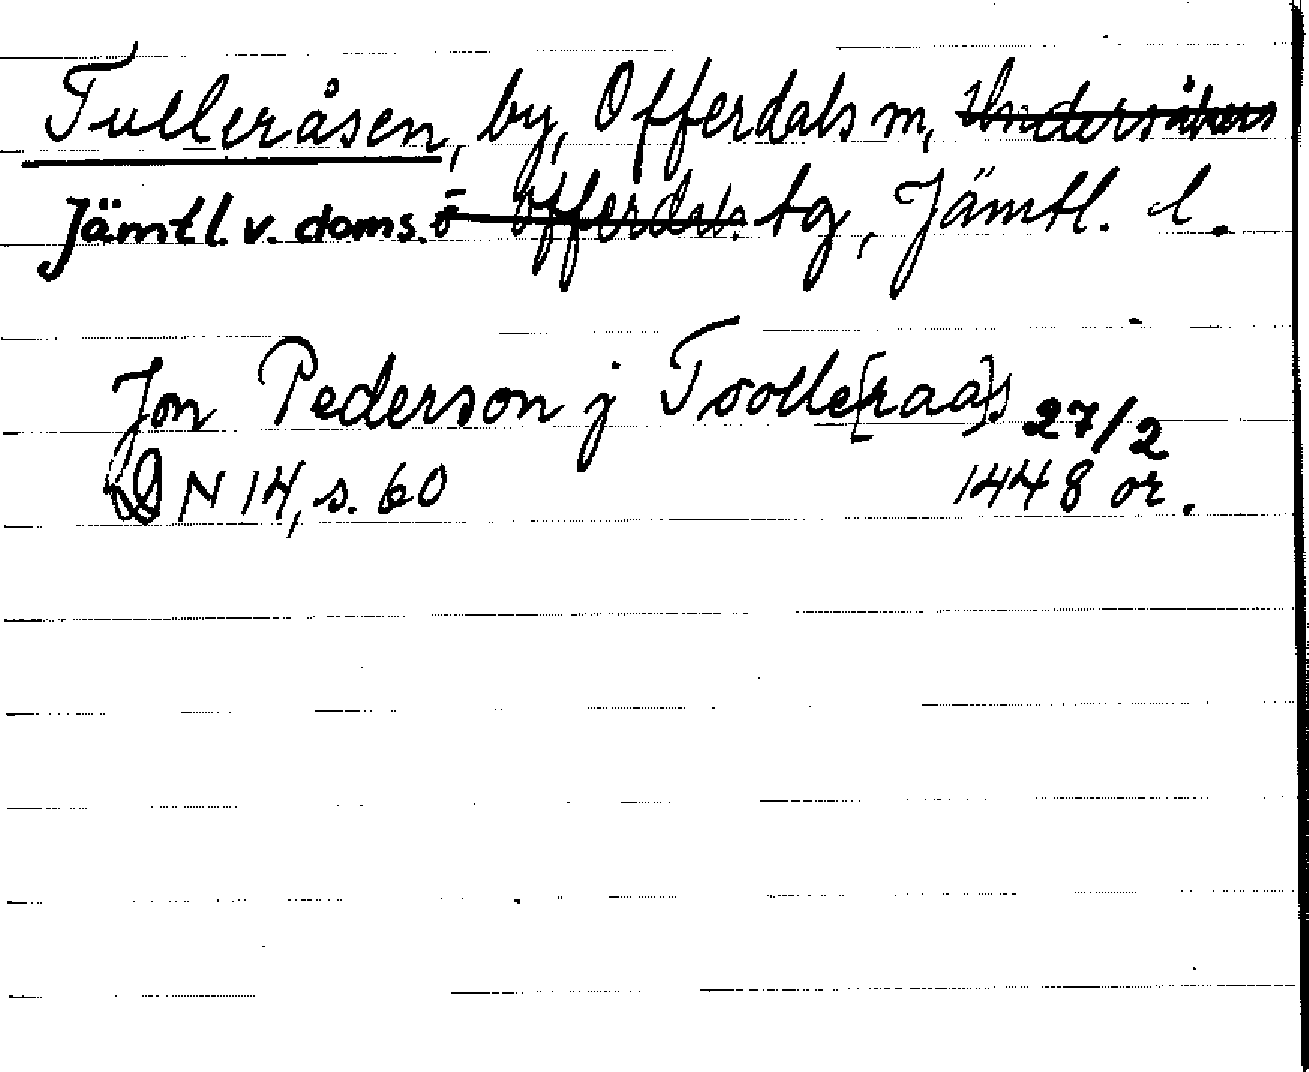 Tulleråsen, by, Offerdals m, Undersåkers
Jämtl. v. doms. o Offerdals tg, Jämtl. l.
Jon Pederson j Toolle[raa]s 27/2
DN 14, s. 60 1448 or.